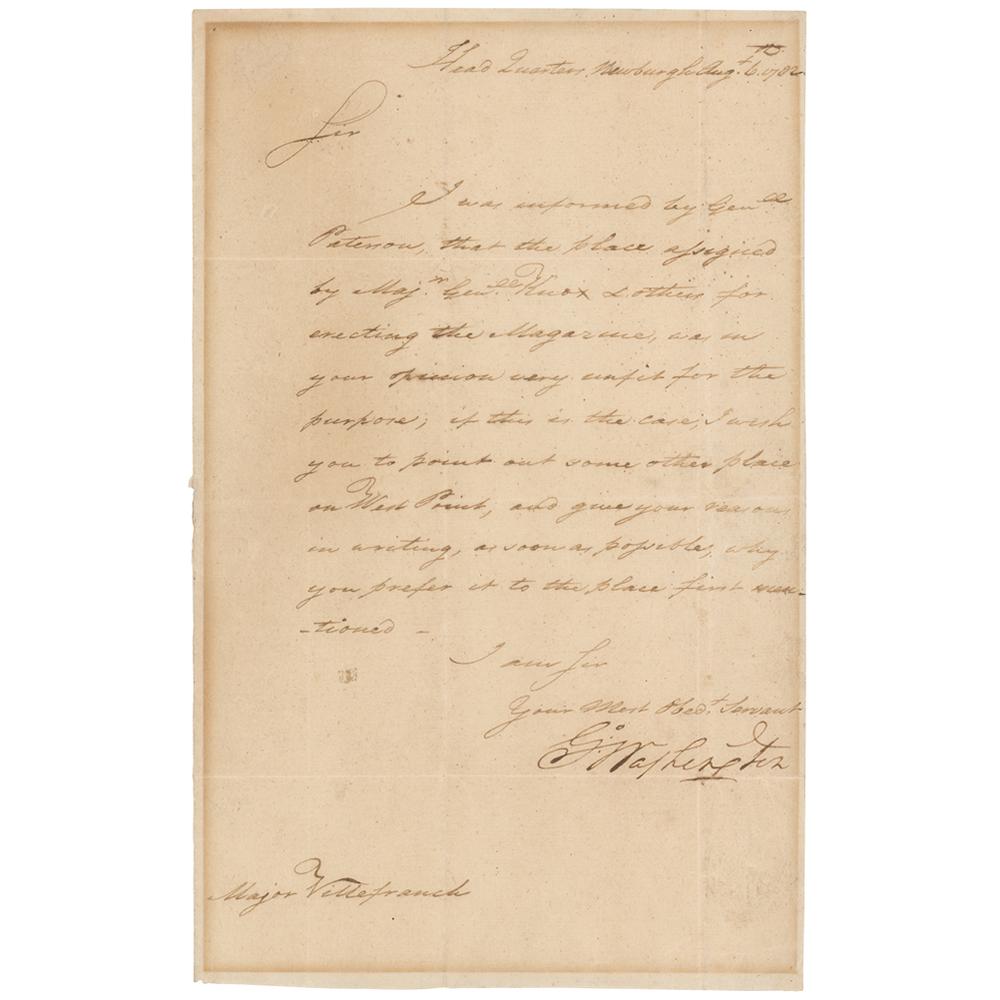 Head Quarters Newburgh Augt. 6th. 1782
Sir
I was informed by Genll
Paterson, that the place assigned
by Majr. Genll. Knox & others for
erecting the Magazine, was in
your opinion very unfit for the
purpose; if this is the case, I wish
you to point out some other place
on West Point, and give your reasons
in writing, as soon as possible, why
you prefer it to the place first men-
-tioned -
I am Sir
Your Most Obedt. Servant
Go. Washington
Major Villefranch